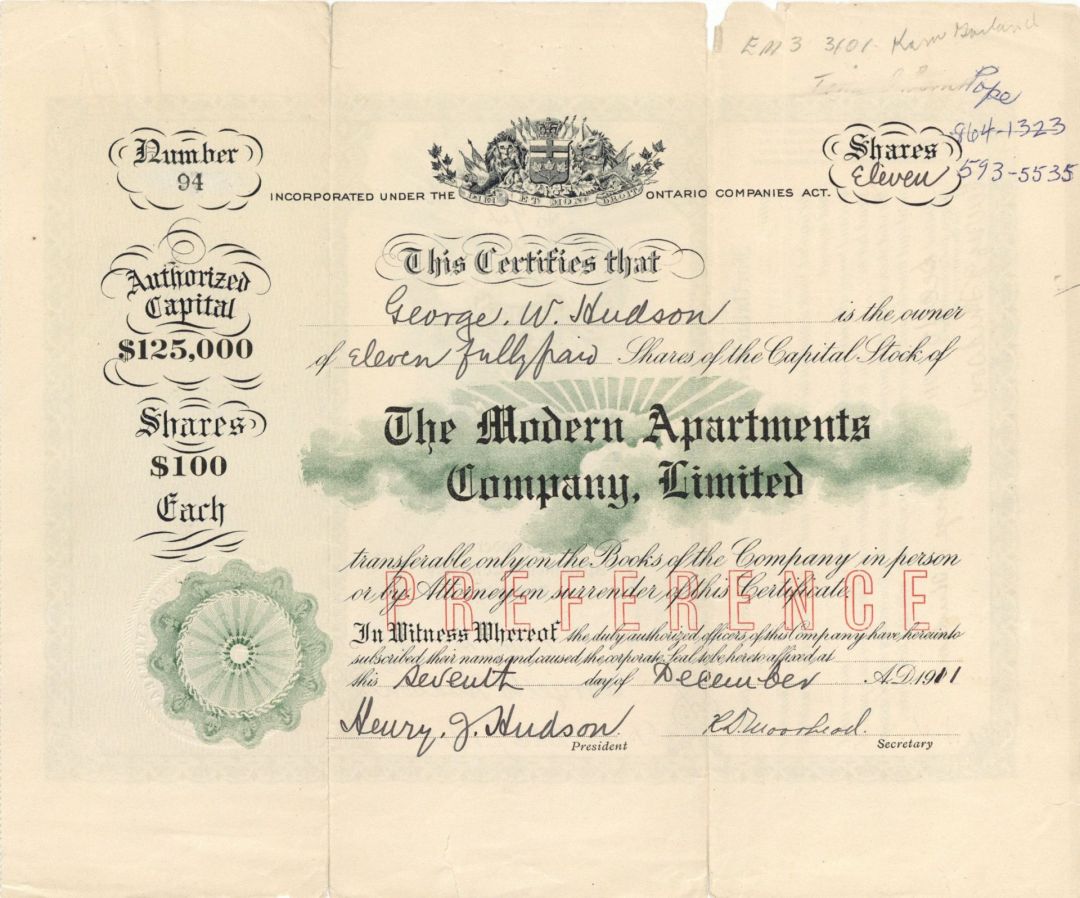 EM3 3101 Kam
Pope
Number
94
Shares
Eleven
964-1323
593-5535
INCORPORATED UNDER THE ONTARIO COMPANIES ACT.
DIEU ET MON DROIT
Authorized
Capital
$125,000
Shares
$100
Each
This Certifies that
George. W. Hudson is the owner
of eleven fully paid Shares of the Capital Stock of
The Modern Apartments
Company, Limited
transferable only on the Books of the Company in person
or by Attorney on surrender of this Certificate.
PREFERENCE
In Witness Whereof the duly authorized officers of this Company have hereunto
subscribed their names and caused the corporate Seal to be hereto affixed at
this seventh day of December A.D. 1911
Henry. J. Hudson. R.D. Moorhead.
President Secretary